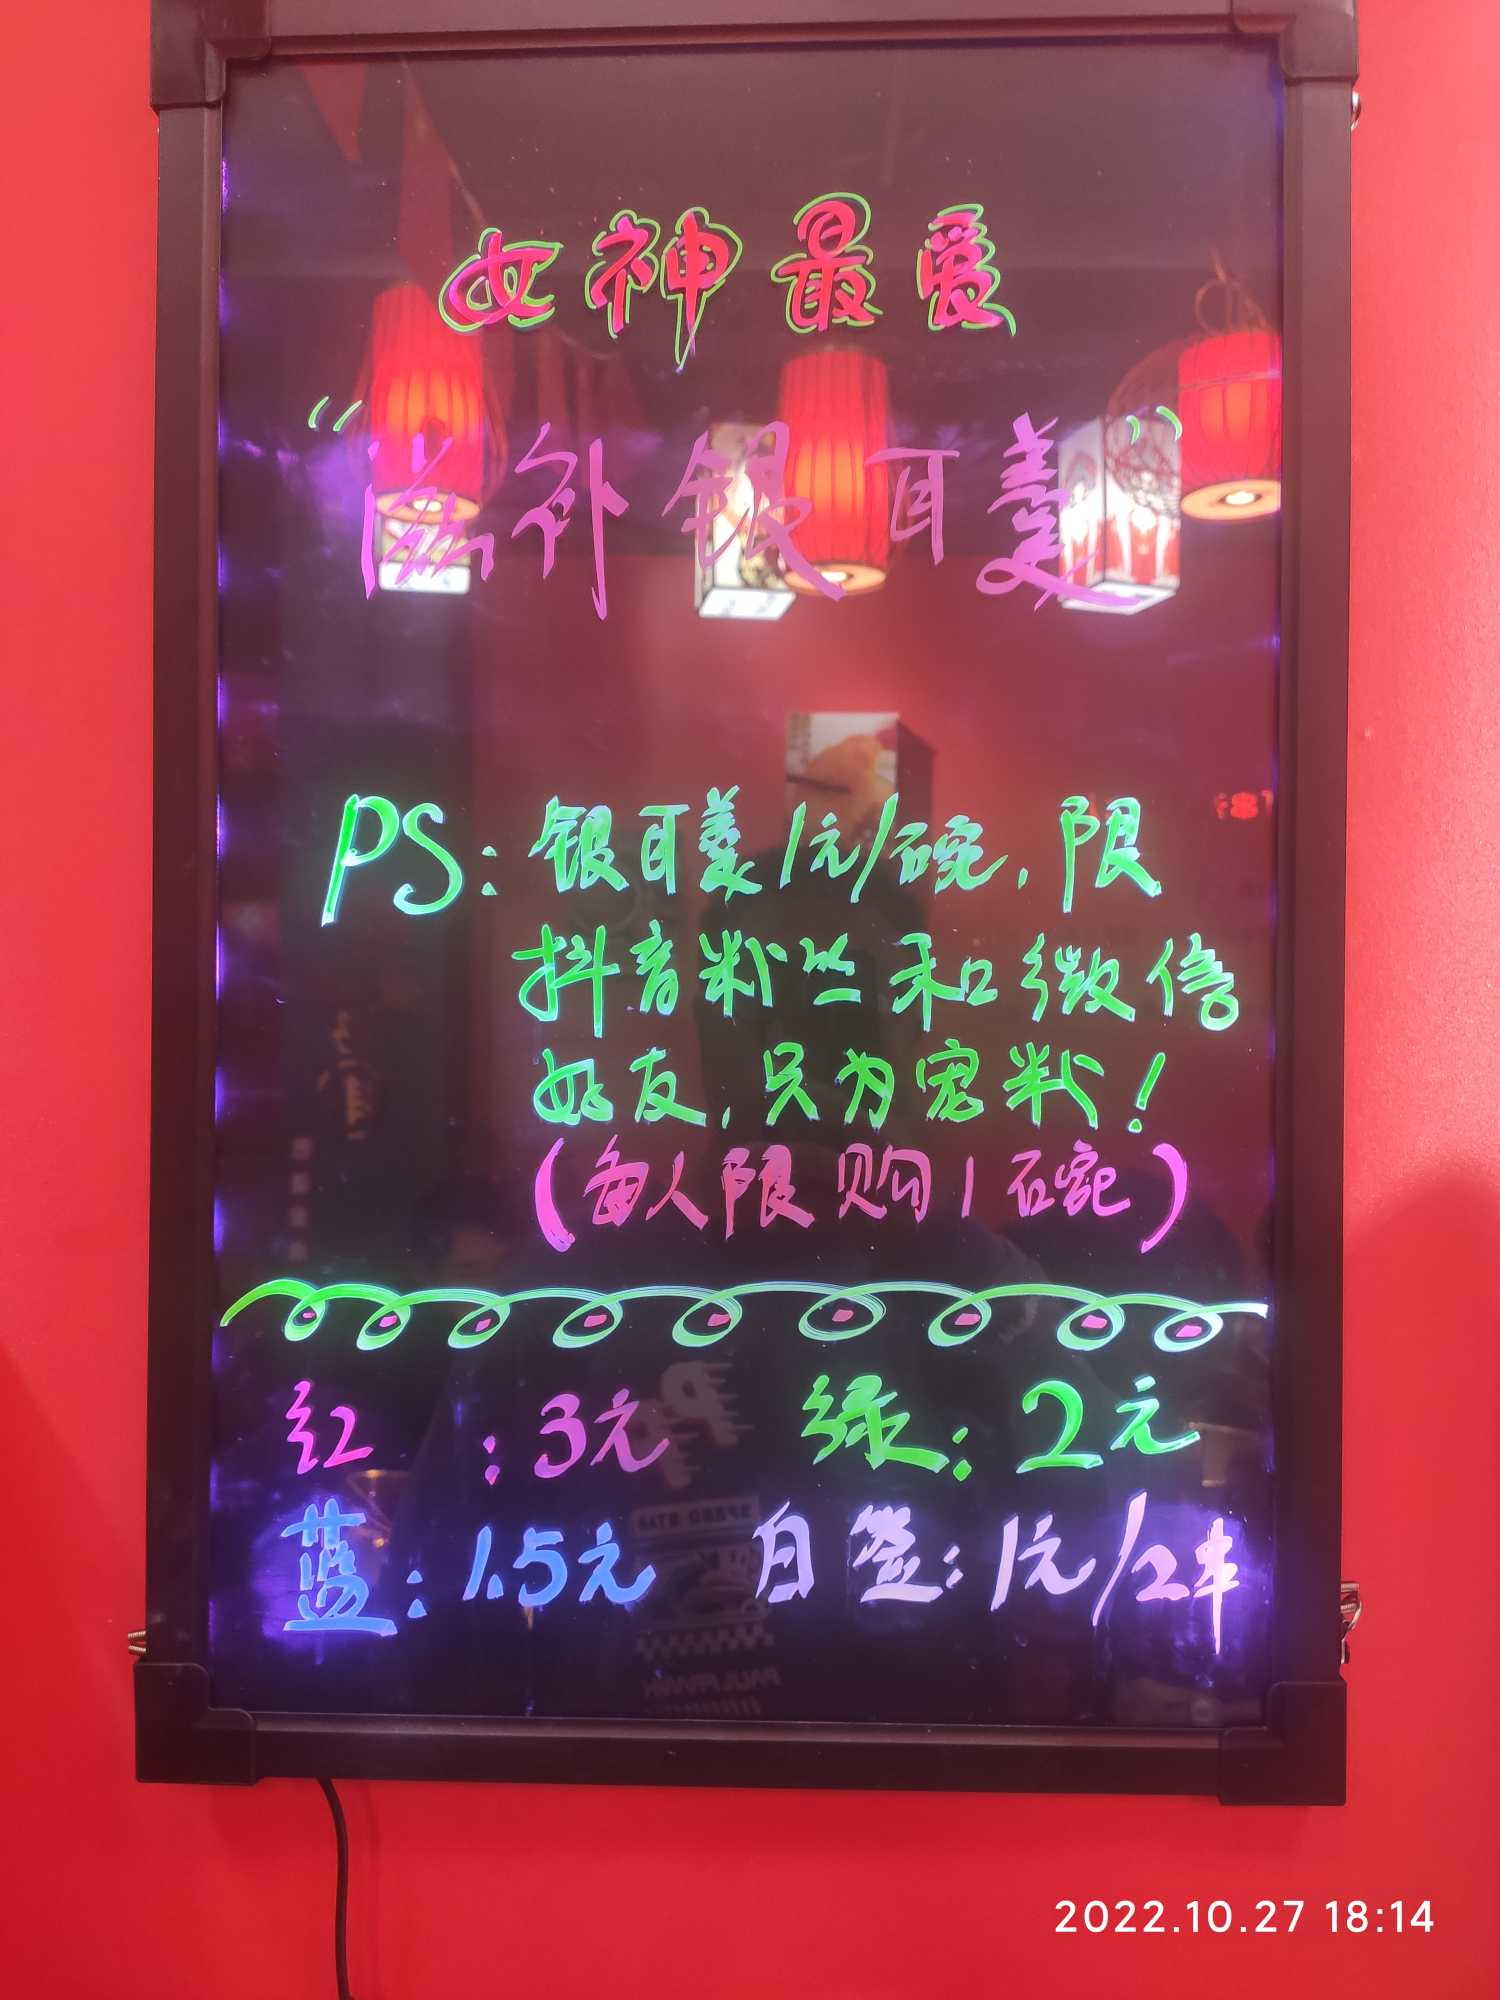 女神最爱
“滋补银耳羹”
PS:银耳羹1元/碗,限
抖音粉丝和微信
好友,只为宠粉!
(每人限购1碗)
红:3元 绿:2元
蓝:1.5元 白签:1元/2串
2022.10.27 18:14